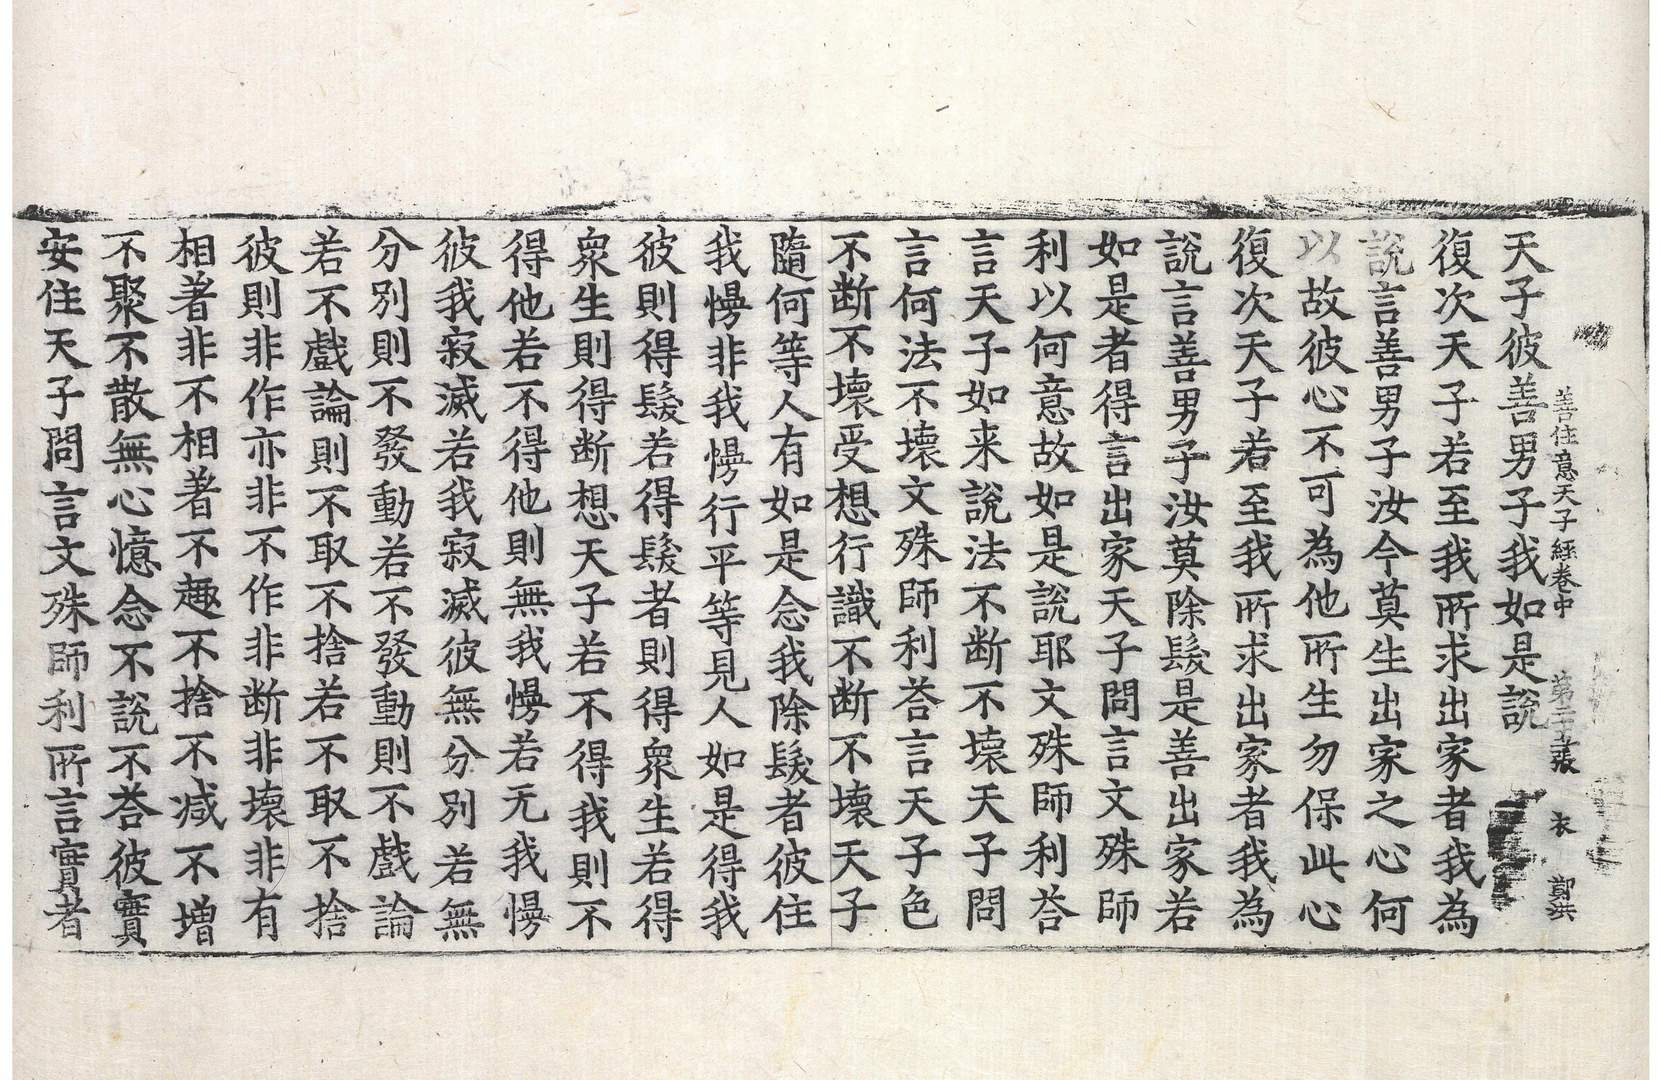 善住意天子經卷中 第二十張 衣 鄭洪
天子彼善男子我如是說
復次天子若至我所求出家者我為
說言善男子汝今莫生出家之心何
以故彼心不可為他所生勿保此心
復次天子若至我所求出家者我為
說言善男子汝莫除髮是善出家若
如是者得言出家天子問言文殊師
利以何意故如是說耶文殊師利荅
言天子如来說法不断不壞天子問
言何法不壞文殊師利荅言天子色
不断不壞受想行識不断不壞天子
隨何等人有如是念我除髮者彼住
我慢非我慢行平等見人如是得我
彼則得髮若得髮者則得衆生若得
衆生則得断想天子若不得我則不
得他若不得他則無我慢若无我慢
彼我寂滅若我寂滅彼無分別若無
分別則不發動若不發動則不戲論
若不戲論則不取不捨若不取不捨
彼則非作亦非不作非断非壞非有
相著非不相著不趣不捨不减不増
不聚不散無心憶念不說不荅彼實
安住天子問言文殊師利所言實者